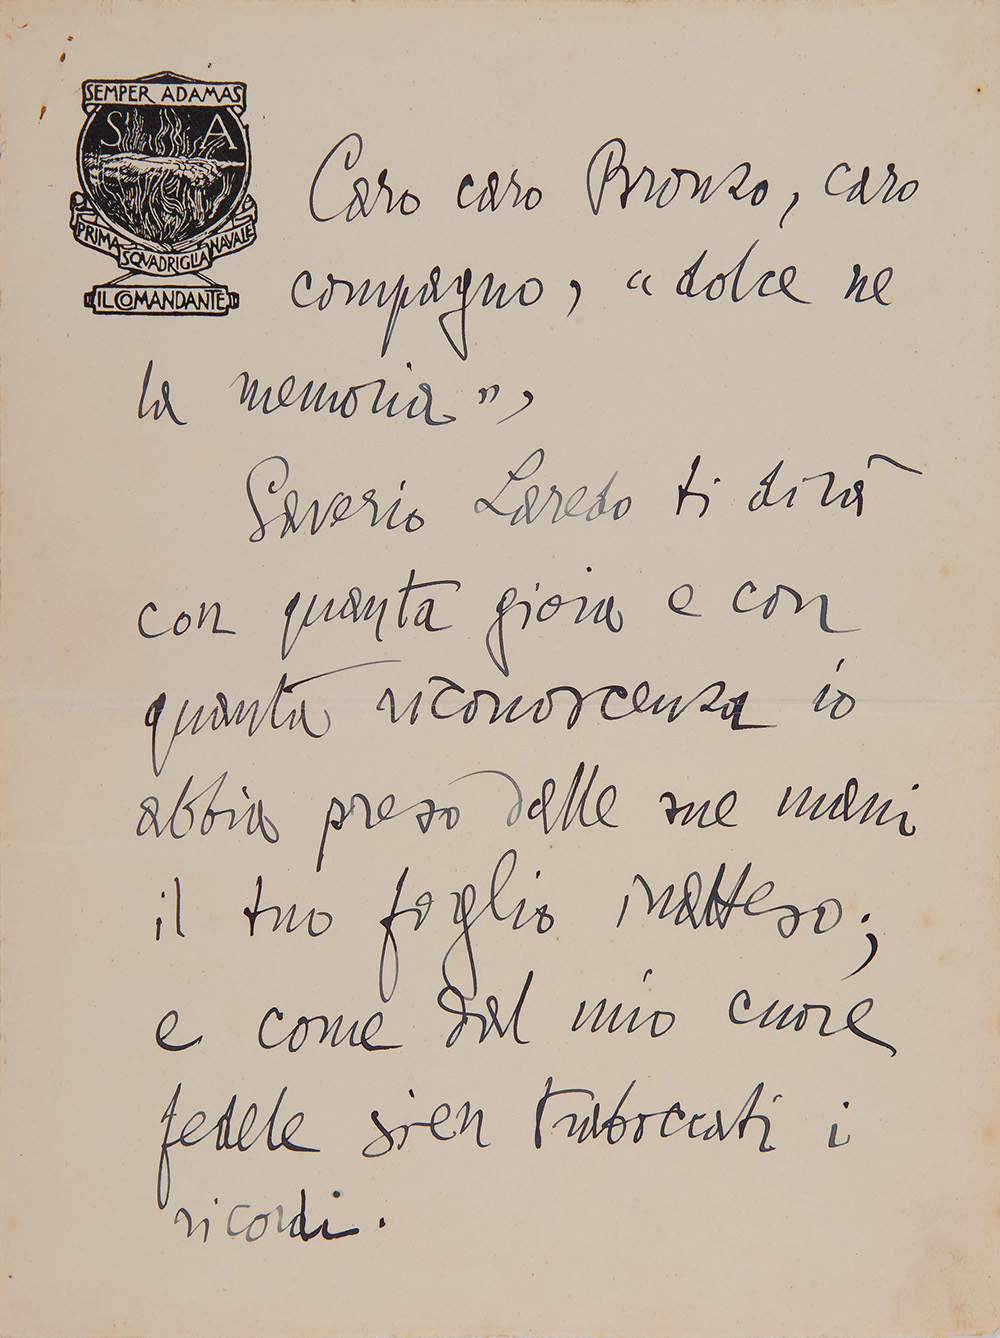 SEMPER ADAMAS
S A
PRIMA SQVADRIGLIA NAVALE
IL COMANDANTE
Caro caro Bronzo, caro
compagno, "dolce ne
la memoria",
Saverio Laredo ti dirà
con quanta gioia e con
quanta riconoscenza io
abbia preso dalle sue mani
il tuo foglio inatteso;
e come dal mio cuore
fedele sien traboccati i
ricordi.